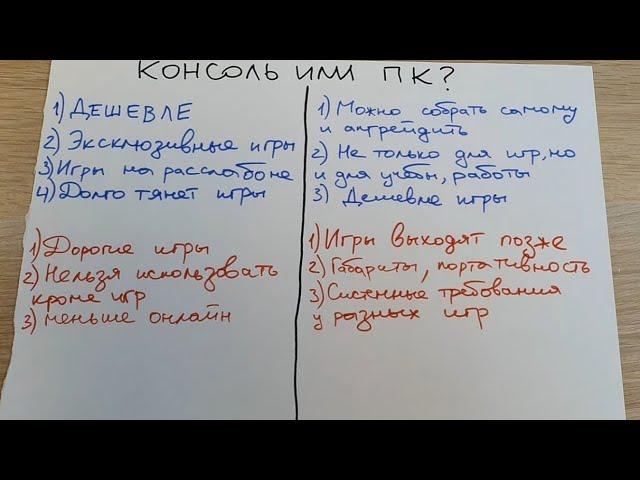 КОНСОЛЬ ИЛИ ПК?
1) ДЕШЕВЛЕ
2) Эксклюзивные игры
3) Игры на расслабоне
4) Долго тянет игры
1) Дорогие игры
2) Нельзя использовать
кроме игр
3) меньше онлайн
1) Можно собрать самому
и апгрейдить
2) Не только для игр, но
и для учёбы, работы
3) Дешевле игры
1) Игры выходят позже
2) Габариты, портативность
3) Системные требования
у разных игр